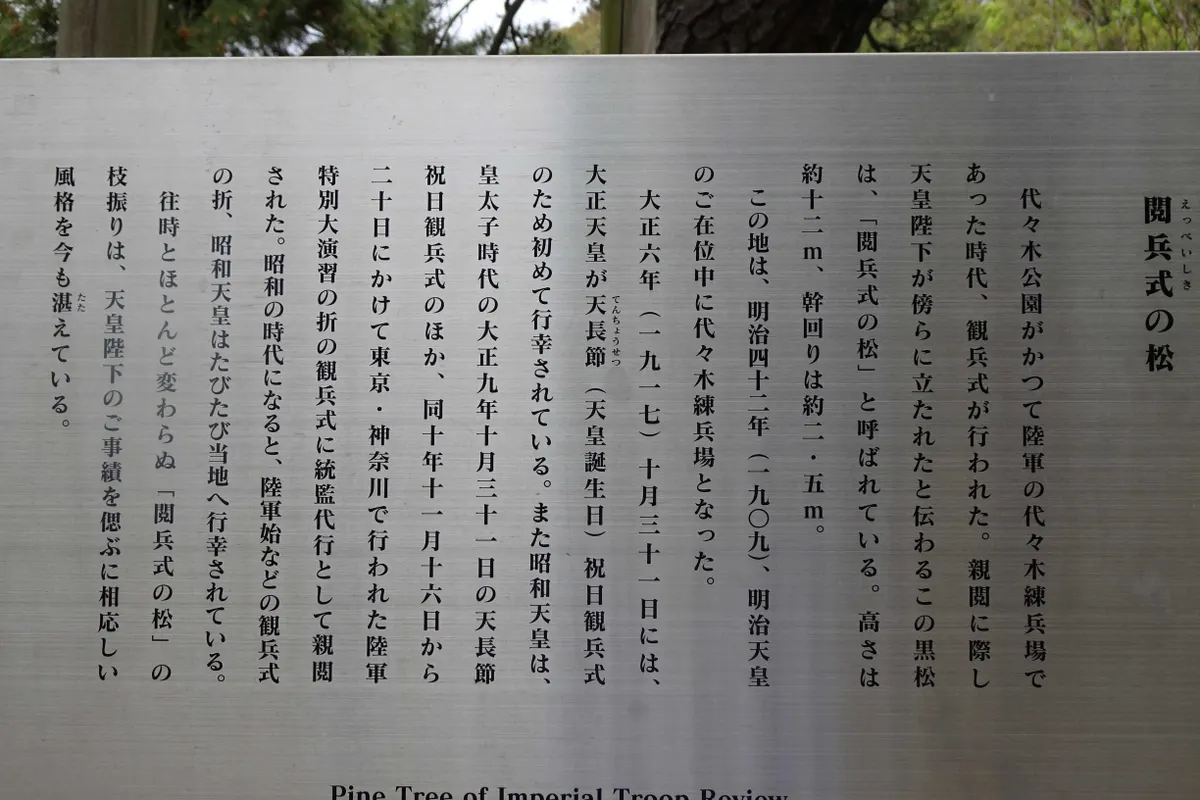 えっぺいしき
閲兵式の松
代々木公園がかつて陸軍の代々木練兵場で
あった時代、観兵式が行われた。親閲に際し
天皇陛下が傍らに立たれたと伝わるこの黒松
は、「閲兵式の松」と呼ばれている。高さは
約十二m、幹回りは約二・五m。
この地は、明治四十二年（一九〇九）、明治天皇
のご在位中に代々木練兵場となった。
大正六年（一九一七）十月三十一日には、
大正天皇が天長節（天皇誕生日）祝日観兵式
てんちょうせつ
のため初めて行幸されている。また昭和天皇は、
皇太子時代の大正九年十月三十一日の天長節
祝日観兵式のほか、同十年十一月十六日から
二十日にかけて東京・神奈川で行われた陸軍
特別大演習の折の観兵式に統監代行として親閲
された。昭和の時代になると、陸軍始などの観兵式
の折、昭和天皇はたびたび当地へ行幸されている。
往時とほとんど変わらぬ「閲兵式の松」の
枝振りは、天皇陛下のご事績を偲ぶに相応しい
風格を今も湛えている。
たた
Pine Tree of Imperial Troop Review